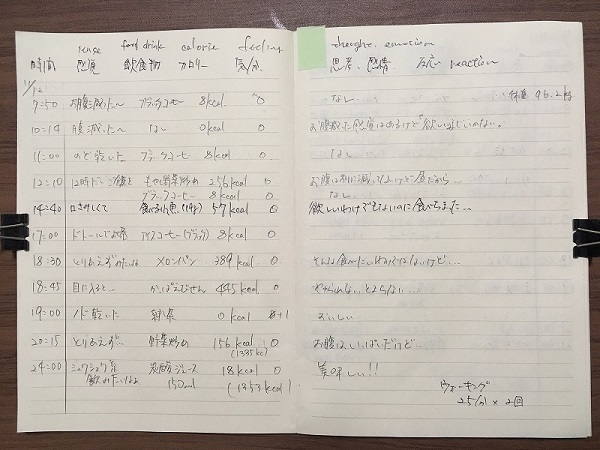 sense food drink calorie feeling
時間 感覚 飲食物 カロリー 気分
11/12
9:50 お腹減った〜 ブラックコーヒー 8kcal 0
10:14 腹減った〜 なし 0kcal 0
11:00 のど乾いた ブラックコーヒー 8kcal 0
12:10 もやし野菜炒め 256kcal 0
ブラックコーヒー 8kcal 0
14:40 口さみしくて 57kcal 0
17:00 ドトールでお茶 アイスコーヒー(ブラック) 8kcal 0
18:30 とりあえず メロンパン 389kcal 0
18:45 目に入ると… かっぱえびせん 445kcal 0
19:00 ノド乾いた 0kcal +1
20:15 とりあえず… 野菜炒め 156kcal 0
(1335kc)
24:00 シュワシュワ系 炭酸ジュース 18kcal 0
飲みたいなぁ 150ml (1353kcal)
thought. emotion
思考、感情 反応 reaction
なし 体重 46.2kg
お腹減った感覚はあるけど
なし
お腹は別に減ってないけど昼だから…
なし
欲しいわけでもないのに食べちゃった…
そんな食べたいわけではないけど…
やめられないとまらない
おいしい
お腹はいっぱいだけど…
美味しい!!
ウォーキング
25分×2回